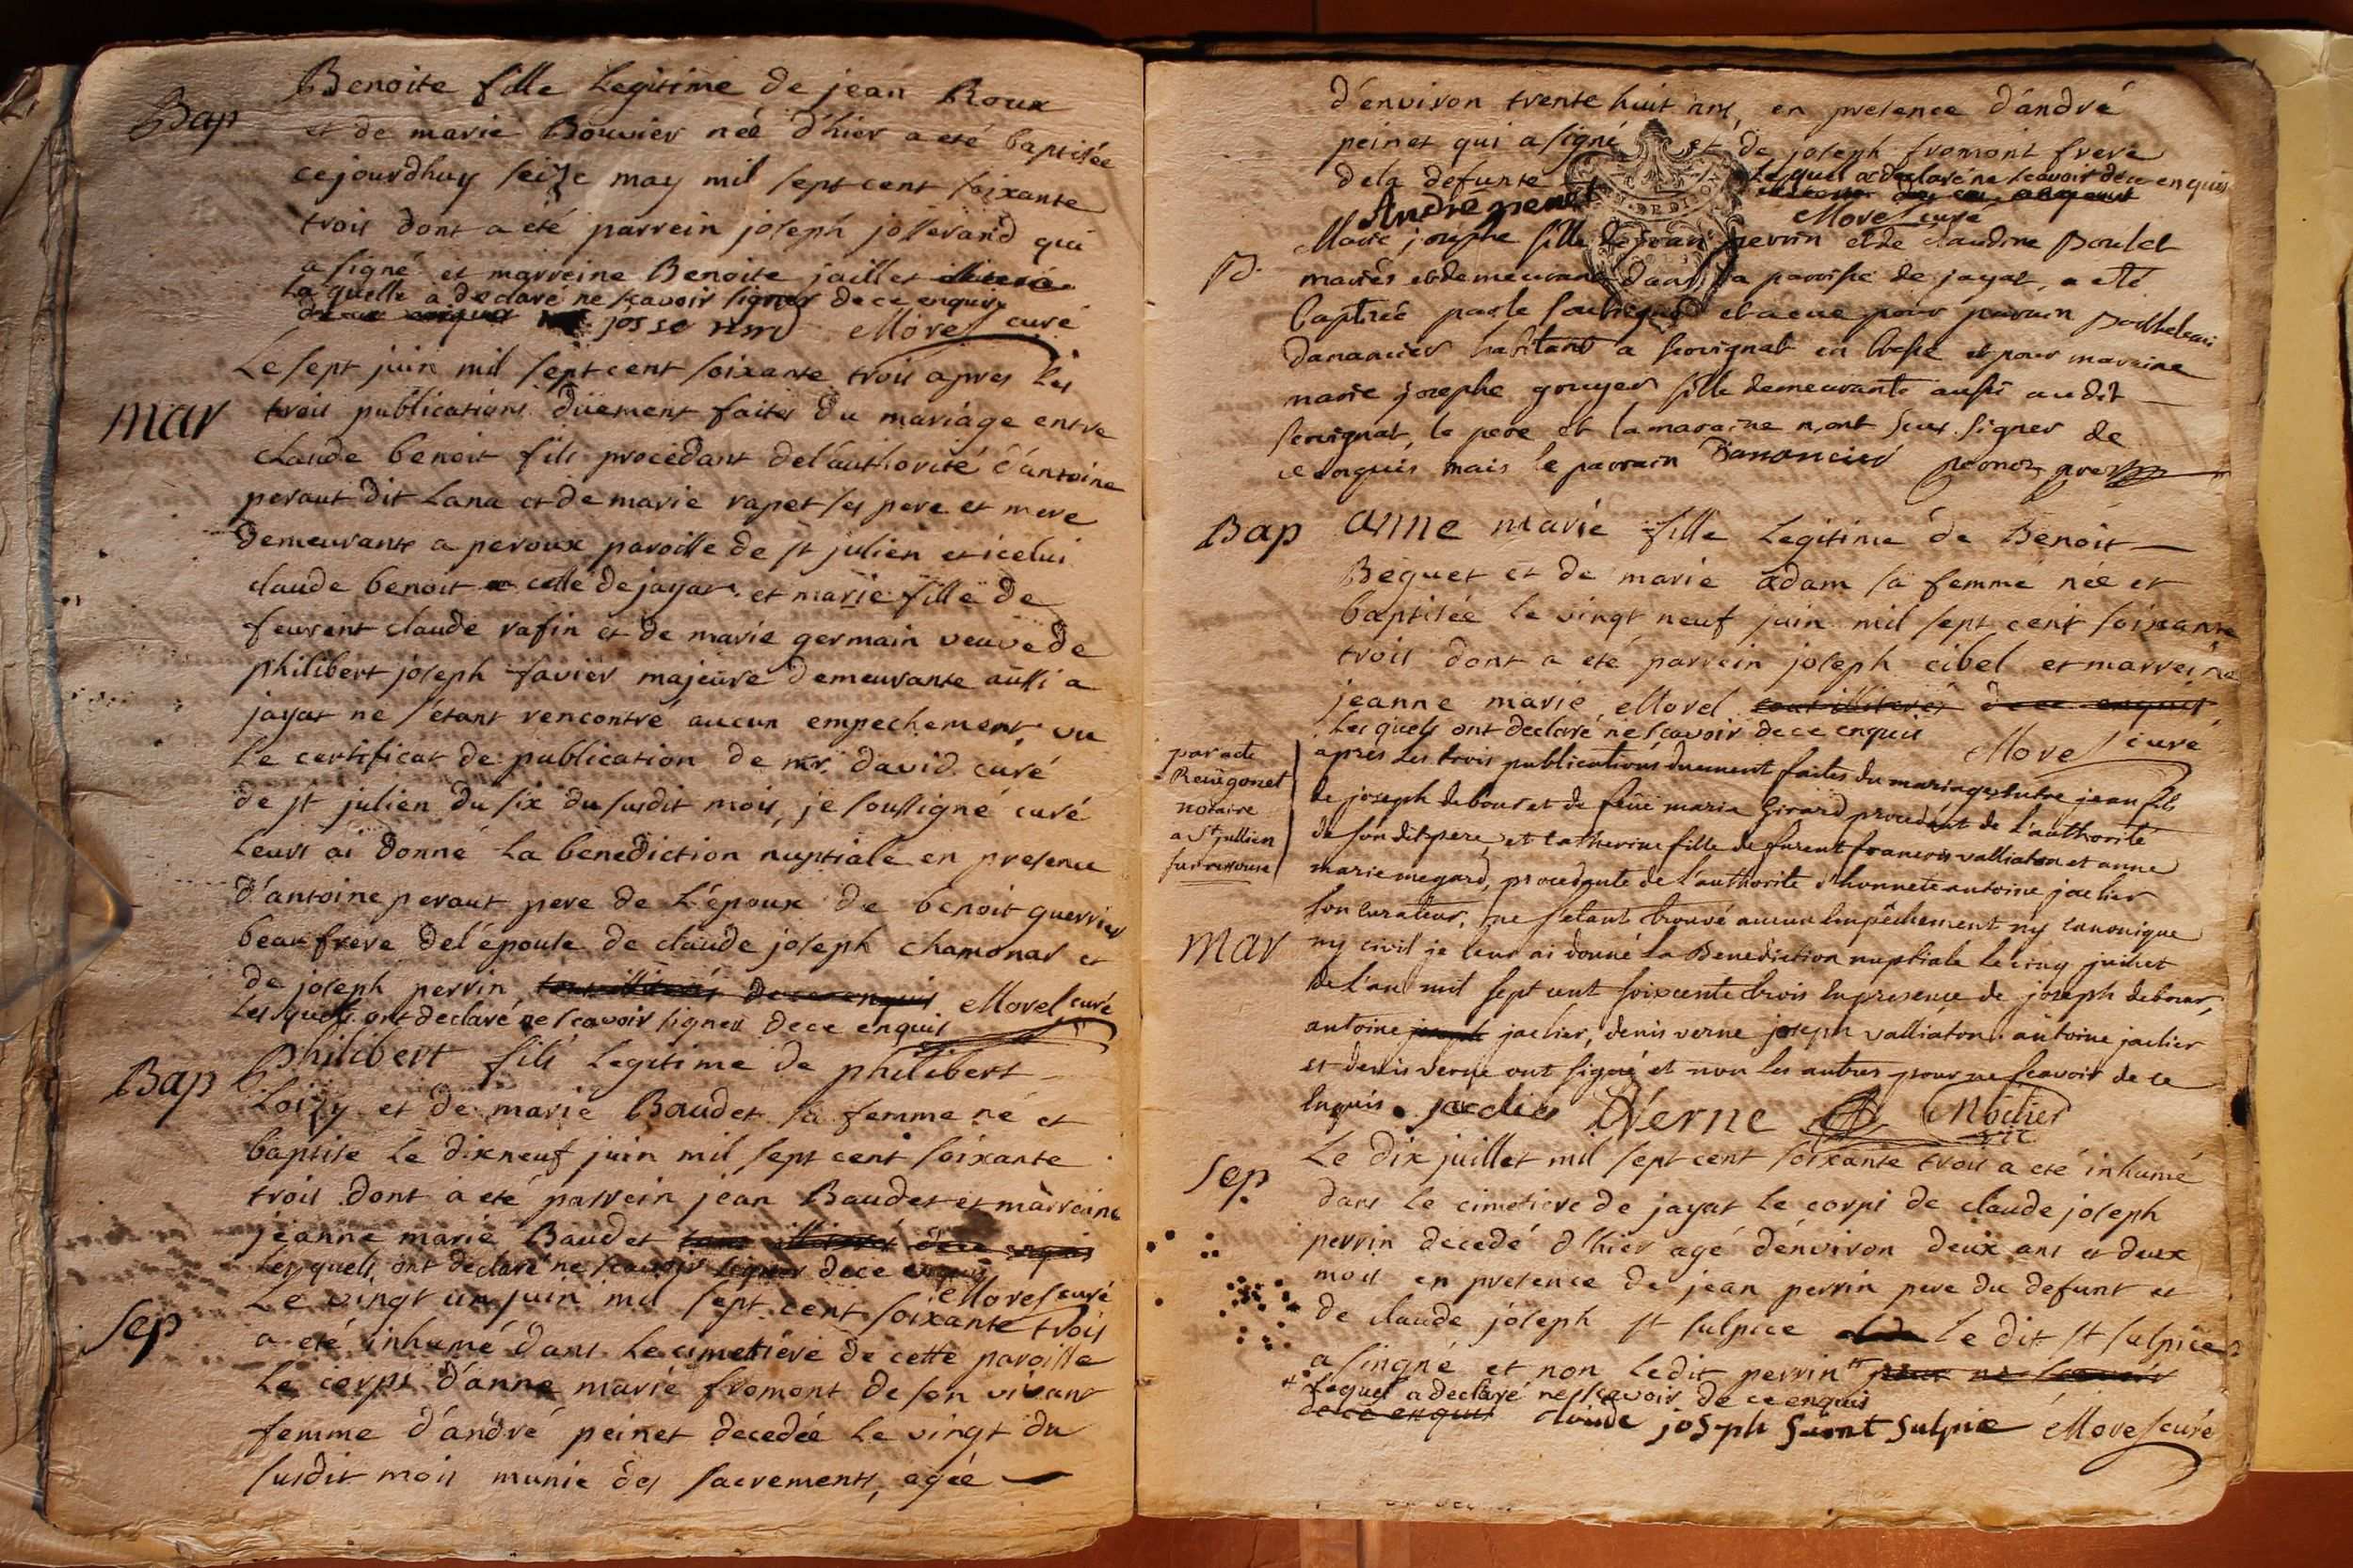 Bap
Benoite fille legitime de jean Roux
et de marie Bouvier née d'hier a eté baptisée
cejourdhuy seize may mil sept cent soixante
trois dont a eté parrein joseph josserand qui
a signé et marreine Benoite jaillet
laquelle a declaré ne scavoir signer de ce enquise
josserand Morel curé
Mar
Le sept juin mil sept cent soixante trois apres les
trois publications düement faites du mariage entre
claude benoit fils procedant de l'authorité d'antoine
peraut dit Lana et de marie rapet ses pere et mere
demeurants a peroux paroisse de st julien et icelui
claude benoit a celle de jayat et marie fille de
feurent claude rafin et de marie germain veuve de
philibert joseph favier majeure demeurante aussi a
jayat ne s'étant rencontré aucun empechement vu
le certificat de publication de mr. david curé
de st julien du six du susdit mois, je soussigné curé
leurs ai donné la benediction nuptiale en presence
d'antoine peraut pere de l'époux de benoit guerrier
beaufrere de l'épouse de claude joseph chamonar et
de joseph perrin tous illiterés de ce enquis Morel curé
Les quels ont declaré ne scavoir signer de ce enquis
Bap
Philibert fils legitime de philibert
Loizy et de marie Baudet sa femme né et
baptisé le dixneuf juin mil sept cent soixante
trois dont a eté parrein jean Baudet et marreine
jeanne marie Baudet tous illiterés de ce enquis
Les quels ont declaré ne scavoir signer de ce enquis
Morel curé
Sep
Le vingt un juin mil sept cent soixante trois
a eté inhumé dans le cimetiére de cette paroisse
le corps d'anne marie fromont de son vivant
femme d'andré peinet decedée le vingt du
susdit mois munie des sacrements, agée
d'environ trente huit ans, en presence d'andré
peinet qui a signé et de joseph fromont frere
de la defunte lequel a declaré ne scavoir de ce enquis
André penet Morel curé
B.
Marie josephe fille de jean perrin et de claudine Boulet
mariés et demeurant dans la paroisse de jayat, a eté
baptisée par le soussigné et a eue pour parrain
danancier habitant a foissiat en bresse et pour maraine
marie josephe gouyer fille demeurante aussi au dit
le pere et la maraine n'ont scus signer de
ce enquis mais le parrain Danancier
Bap
anne marie fille legitime de Benoit
Beguet et de marie adam sa femme née et
baptisée le vingt neuf juin mil sept cent soixante
trois dont a eté parrein joseph cibel et marreine
jeanne marie Morel tous illiterés de ce enquis
Les quels ont declaré ne scavoir de ce enquis Morel curé
par acte
Reüe gonet
notaire
a St jullien
sur ressouse
Mar
apres les trois publications duement faites du mariage entre jean fils
de joseph debourg et de feüe marie Girard procedant de l'authorité
de son dit pere, et catherine fille de furent francois valliaton et anne
marie megard, procedante de l'authorité d'honnete antoine jaclier
son curateur, ne s'etant trouvé aucun empêchement ny canonique
ny civil je leur ai donné la Benediction nuptiale le cinq juillet
de l'an mil sept cent soixcente trois en presence de joseph debour,
antoine joseph jaclier, denis verne joseph valliaton. antoine jaclier
et denis verne ont signé et non les autres pour ne scavoir de ce
enquis. jaclier DVerne Nodier
vic
Sep
Le dix juillet mil sept cent soixante trois a eté inhumé
dans le cimetiere de jayat le corps de claude joseph
perrin decedé d'hier agé d'environ deux ans et deux
mois en presence de jean perrin pere du defunt et
de claude joseph st sulpice le dit st sulpice
a singné et non ledit perrin pour ne scavoir
lequel a declaré ne scavoir de ce enquis
de ce enquis claude joseph saint sulpice Morel curé